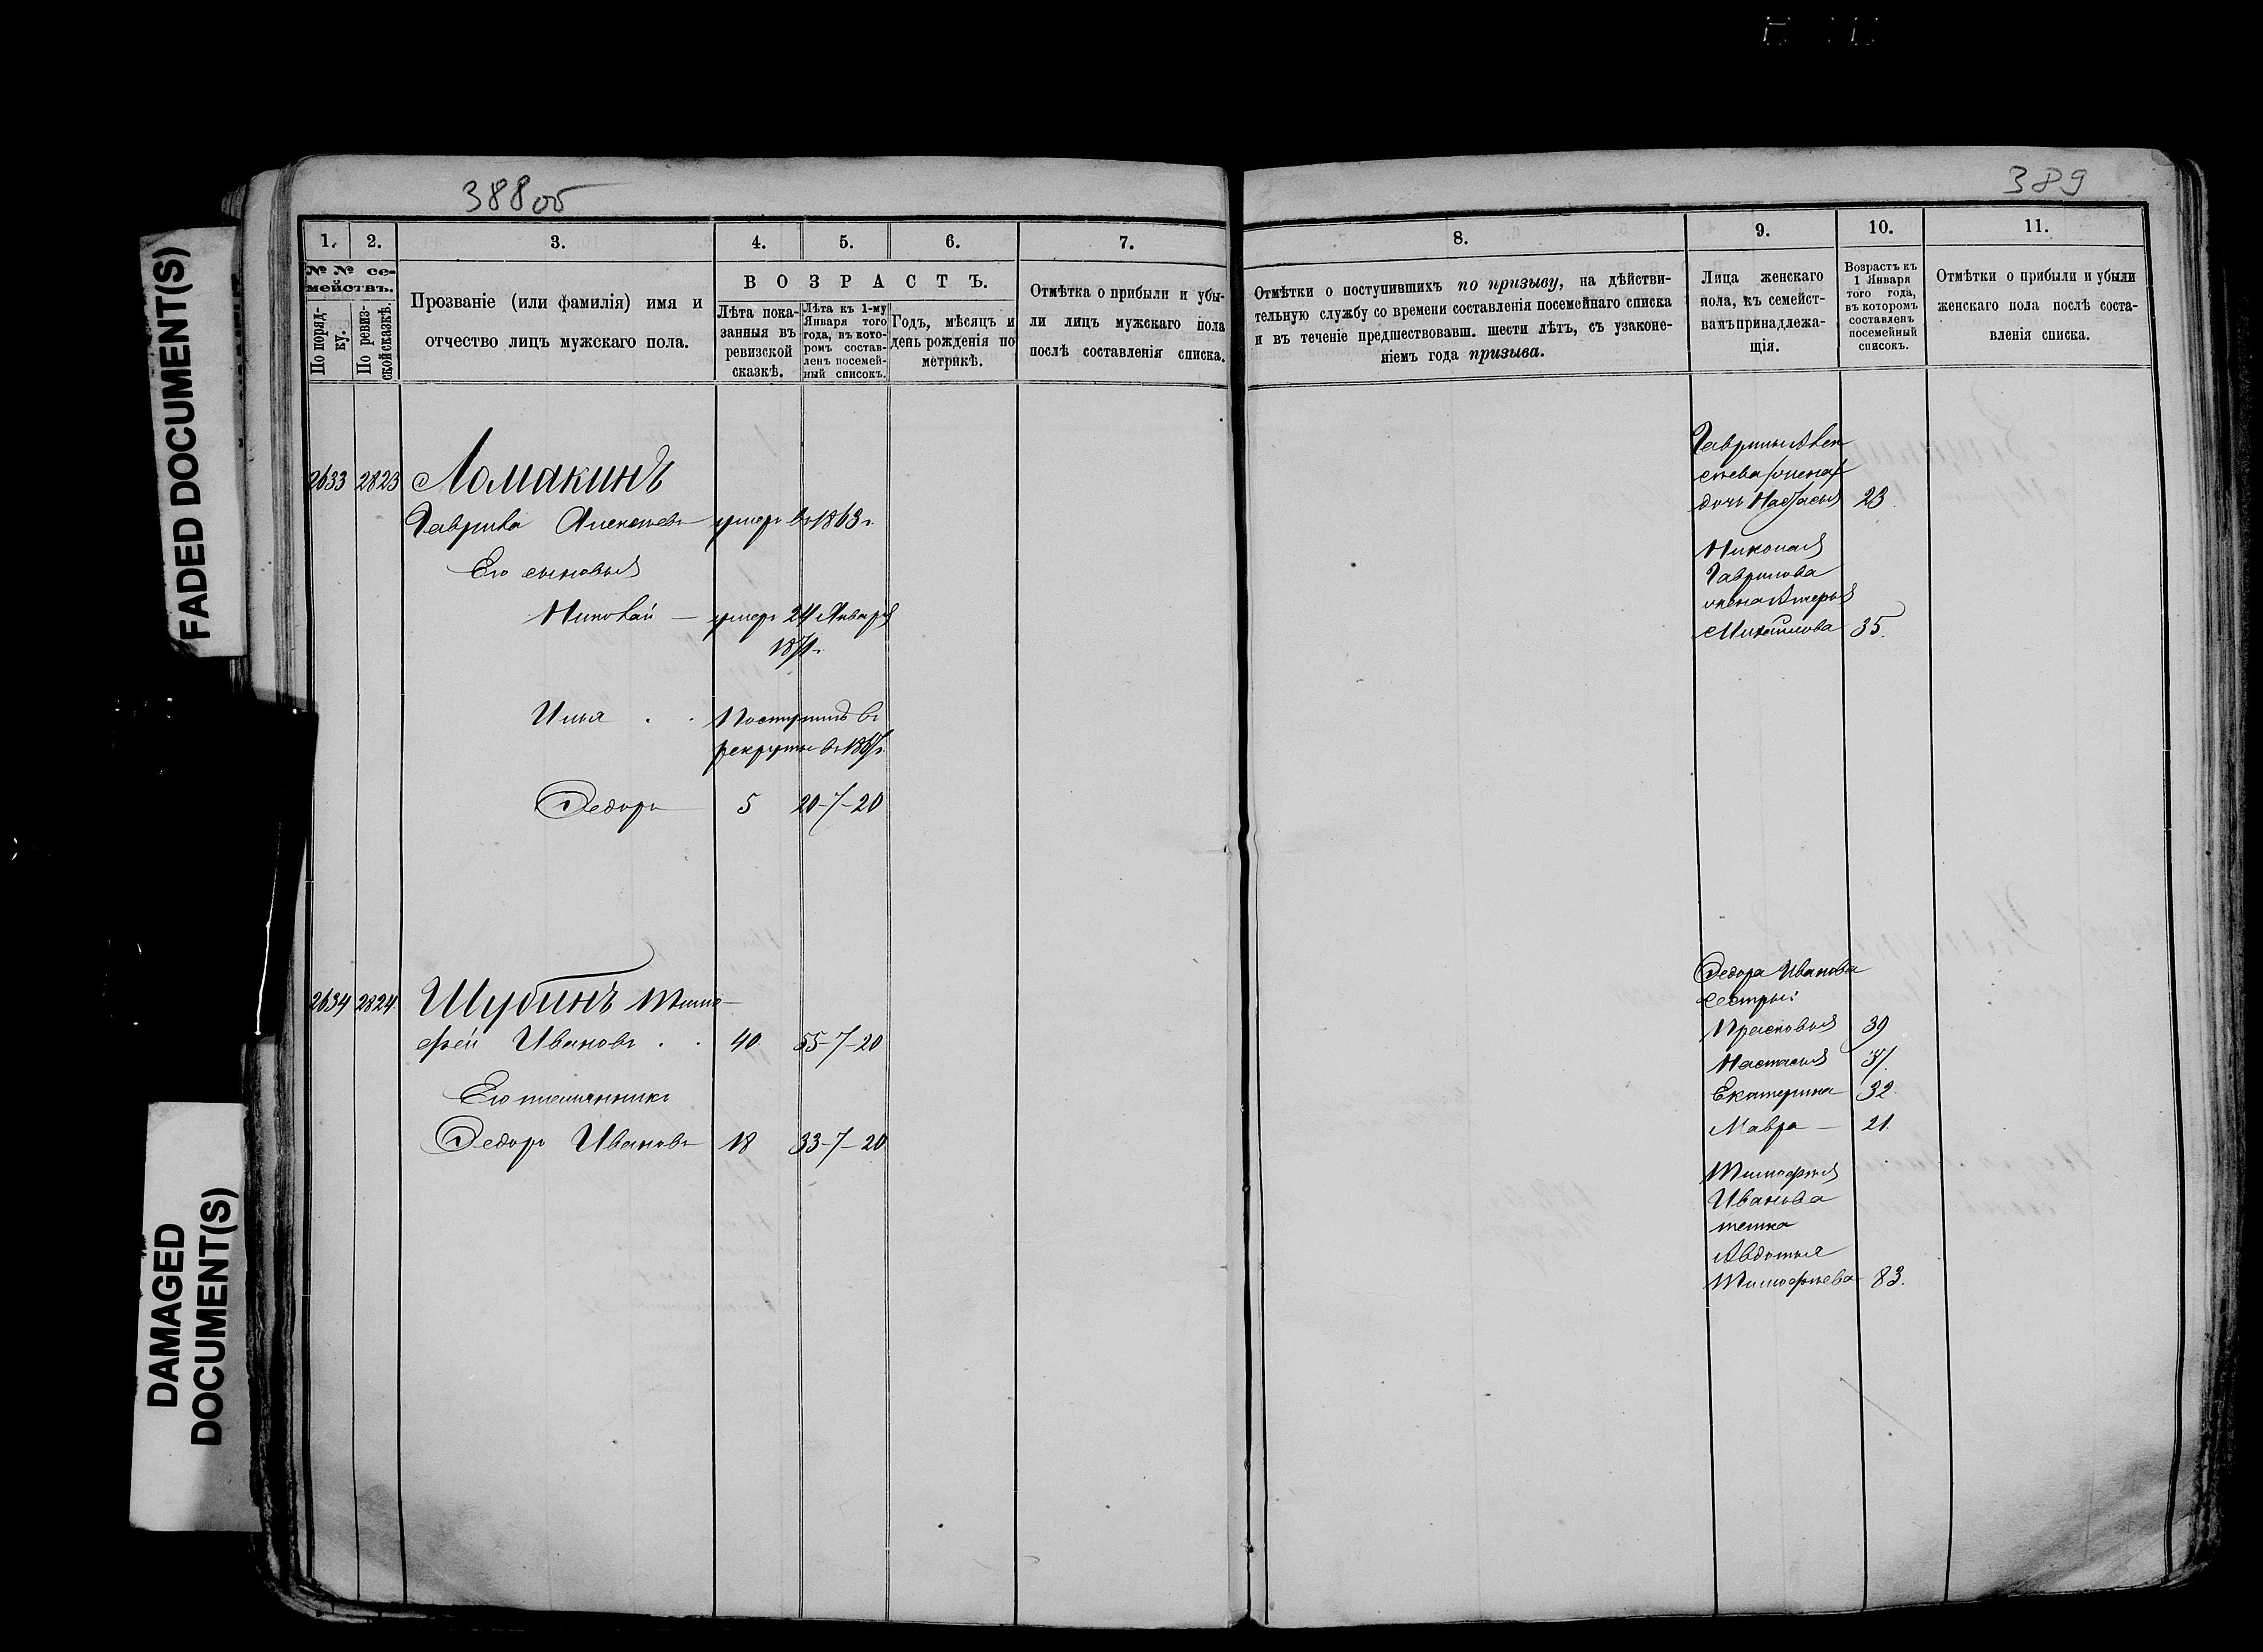 388об
389
FADED DOCUMENT(S)
DAMAGED
DOCUMENT(S)
1.
2.
3.
4.
5.
6.
7.
8.
9.
10.
11.
№ № се-
мействъ.
По поряд-
ку.
По ревиз-
ской сказкѣ.
Прозваніе (или фамилія) имя и
отчество лицъ мужскаго пола.
ВОЗРАСТЪ.
Лѣта пока-
занныя въ
ревизской
сказкѣ.
Лѣта къ 1-му
Января того
года, въ кото-
ромъ состав-
ленъ посемей-
ный списокъ.
Годъ, мѣсяцъ и
день рожденія по
метрикѣ.
Отмѣтка о прибыли и убы-
ли лицъ мужскаго пола
послѣ составленія списка.
Отмѣтки о поступившихъ по призыву, на дѣйстви-
тельную службу со времени составленія посемейнаго списка
и въ теченіе предшествовавш. шести лѣтъ, съ узаконе-
ніемъ года призыва.
Лица женскаго
пола, къ семейст-
вамъ принадлежа-
щія.
Возрастъ къ
1 Января
того года,
въ которомъ
составленъ
посемейный
списокъ.
Отмѣтки о прибыли и убыли
женскаго пола послѣ соста-
вленія списка.
2633 2823 Ломакинъ
Гаврила Алексѣевъ умеръ въ 1863 г.
Его сыновья
Николай — умеръ 24 Января
1871 г.
Илья . . Поступилъ въ
рекруты въ
Ѳедоръ 5 20-7-20
Гаврилы Алек
сѣева
дочь Настасья 23.
Николая
Гаврилова
жена
Михайлова 35.
2634 2824. Шубинъ Тимо-
фей Ивановъ . . 40. 55-7-20
Его племянникъ
Ѳедоръ Ивановъ 18 33-7-20
Ѳедора Иванова
сестры:
Прасковья 39
Настасья 37.
Екатерина 32.
Мавра — 21.
Тимофея
Иванова
тетка
Авдотья
Тимофеева 83.